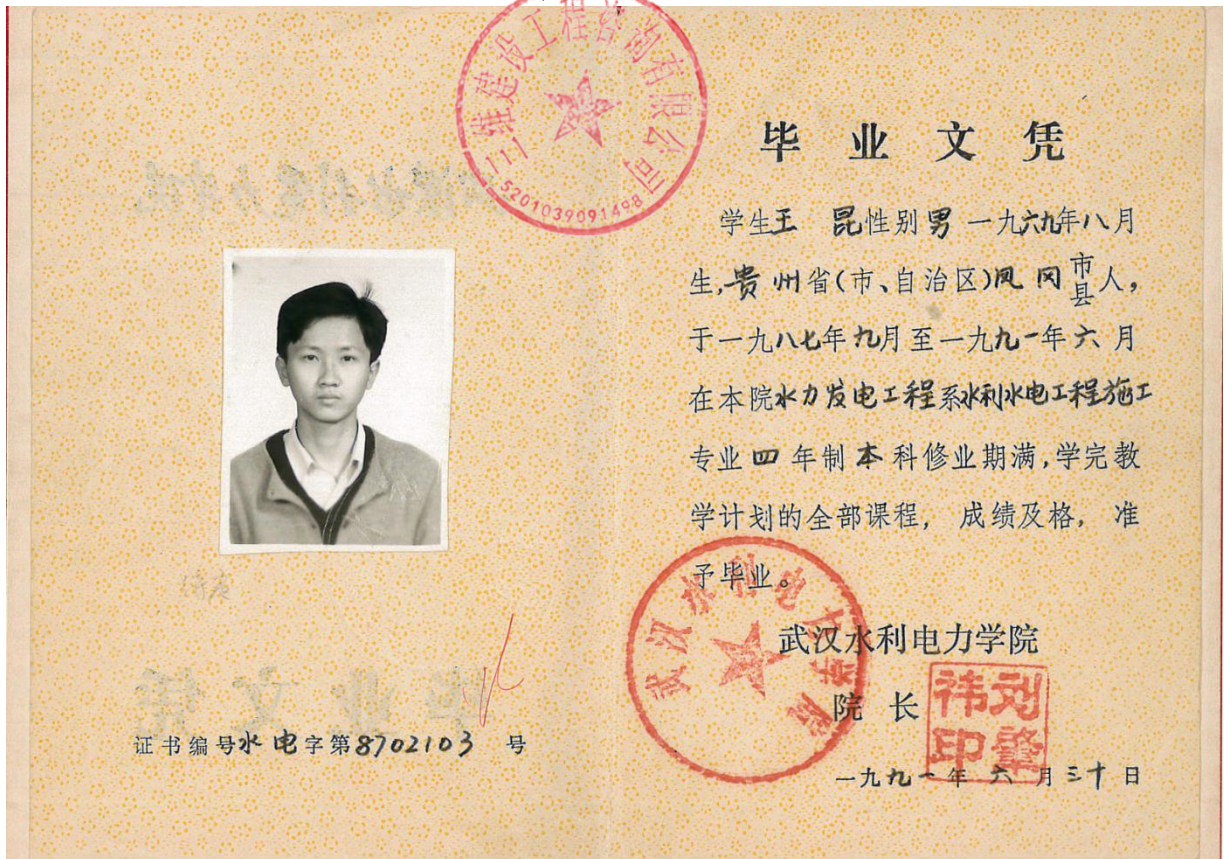 三维建设工程咨询有限公司
5201039091498
毕业文凭
学生王 昆性别男 一九六九年八月
生,贵州省(市、自治区)凤冈市县人,
于一九八七年九月至一九九一年六月
在本院水力发电工程系水利水电工程施工
专业四年制本科修业期满,学完教
学计划的全部课程, 成绩及格, 准
予毕业。
武汉水利电力学院
武汉水利电力学院
院 长
刘肇祎印
一九九一年六月三十日
证书编号水电字第8702103 号